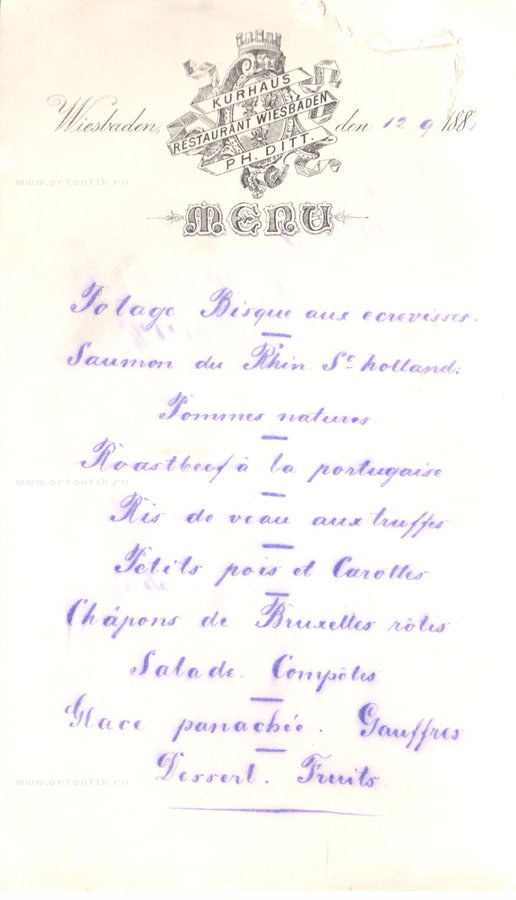 KURHAUS
RESTAURANT WIESBADEN
PH. DITT.
Wiesbaden, den 12 9 188
MENU
Potage Bisque aux ecrevisses.
Saumon du Rhin Sᶜ holland:
Pommes natures
Roastbeef à la portugaise
Ris de veau aux truffes
Petits pois et Carottes
Châpons de Bruxelles rôtes
Salade. Compôtes
Glace panachée. Gauffres
Dessert. Fruits.
www.artantik.ru
www.artantik.ru
www.artantik.ru